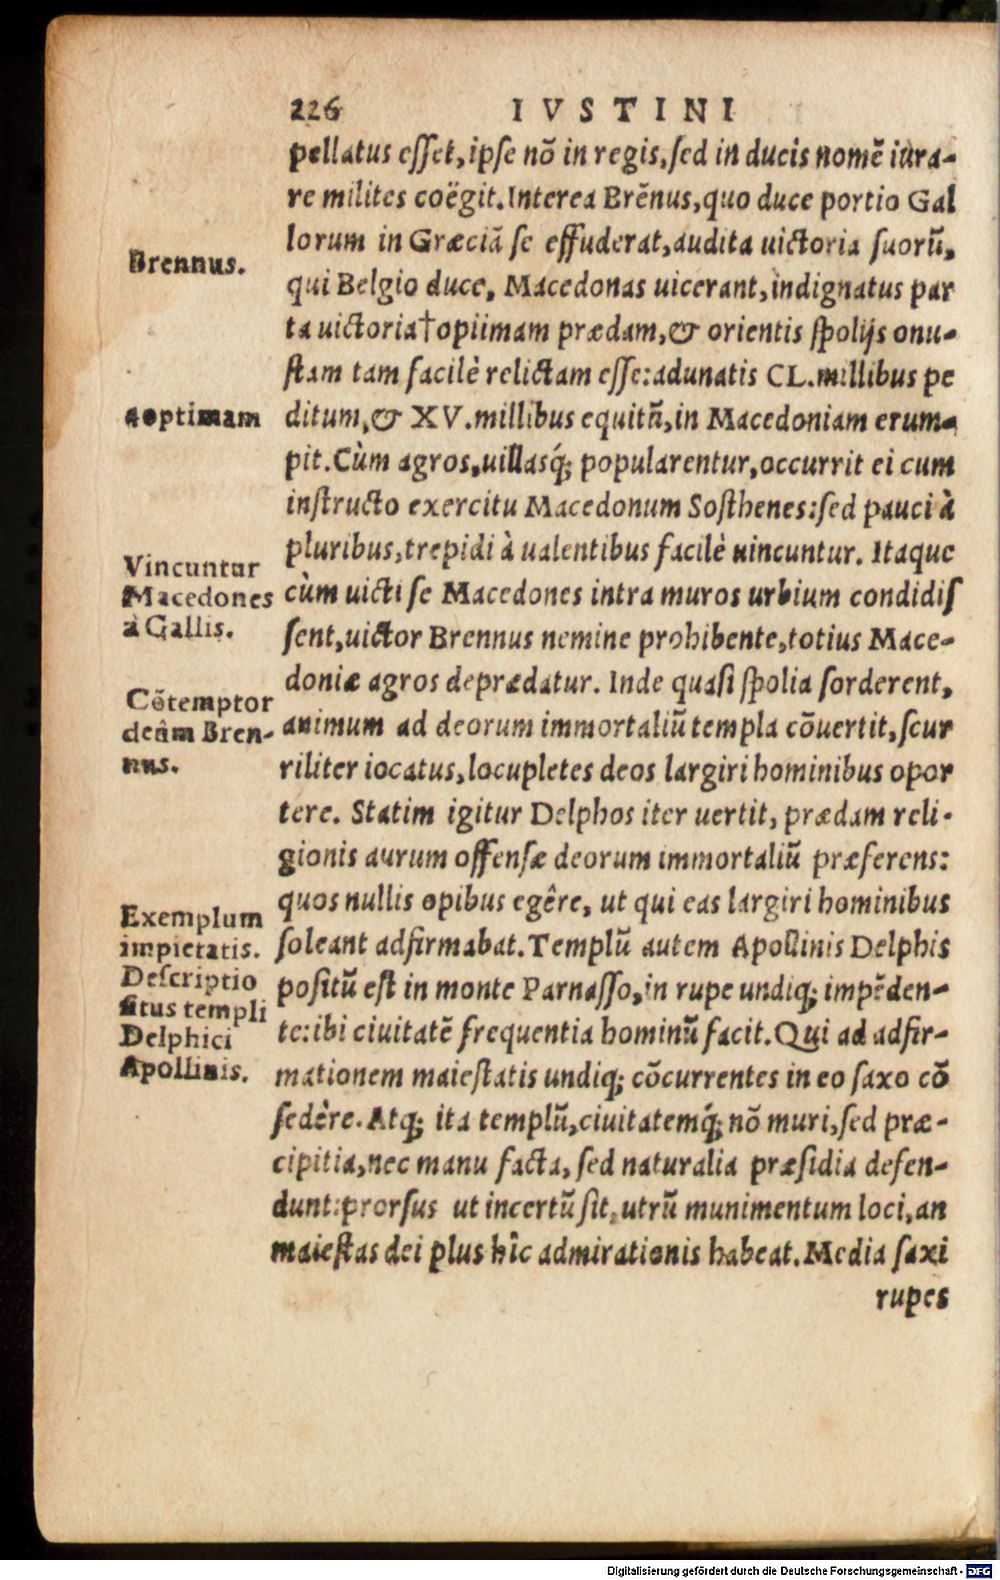 226 IVSTINI
pellatus esset, ipse nõ in regis, sed in ducis nomẽ iura-
re milites coëgit. Interea Brẽnus, quo duce portio Gal
lorum in Græciã se effuderat, audita uictoria suorũ,
Brennus.
qui Belgio duce, Macedonas uicerant, indignatus par
ta uictoria†opiimam prædam, & orientis spolijs onu-
stam tam facilè relictam esse: adunatis CL. millibus pe
aoptimam
ditum, & XV. millibus equitũ, in Macedoniam erum-
pit. Cùm agros, uillasq́; popularentur, occurrit ei cum
instructo exercitu Macedonum Sosthenes: sed pauci à
pluribus, trepidi à ualentibus facilè uincuntur. Itaque
Vincuntur
Macedones
à Gallis.
cùm uicti se Macedones intra muros urbium condidis
sent, uictor Brennus nemine prohibente, totius Mace-
doniæ agros deprædatur. Inde quasi spolia sorderent,
Cõtemptor
deûm Bren-
nus.
animum ad deorum immortaliũ templa cõuertit, scur
riliter iocatus, locupletes deos largiri hominibus opor
tere. Statim igitur Delphos iter uertit, prædam reli-
gionis aurum offensæ deorum immortaliũ præferens:
quos nullis opibus egêre, ut qui eas largiri hominibus
Exemplum
impietatis.
soleant adfirmabat. Templũ autem Apollinis Delphis
Descriptio
situs templi
Delphici
Apollinis.
positũ est in monte Parnasso, in rupe undiq; impẽden-
te: ibi ciuitatẽ frequentia hominũ facit. Qui ad adfir-
mationem maiestatis undiq; cõcurrentes in eo saxo cõ
sedêre. Atq; ita templũ, ciuitatemq́; nõ muri, sed præ-
cipitia, nec manu facta, sed naturalia præsidia defen-
dunt: prorsus ut incertũ sit, utrũ munimentum loci, an
maiestas dei plus hîc admirationis habeat. Media saxi
rupes
Digitalisierung gefördert durch die Deutsche Forschungsgemeinschaft - DFG